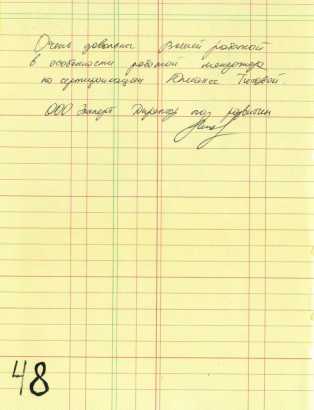 Очень довольны Вашей работой
в особенности работой менеджера
по сертификации Юлианы Титовой.
ООО Эксперт Директор по развитию
48